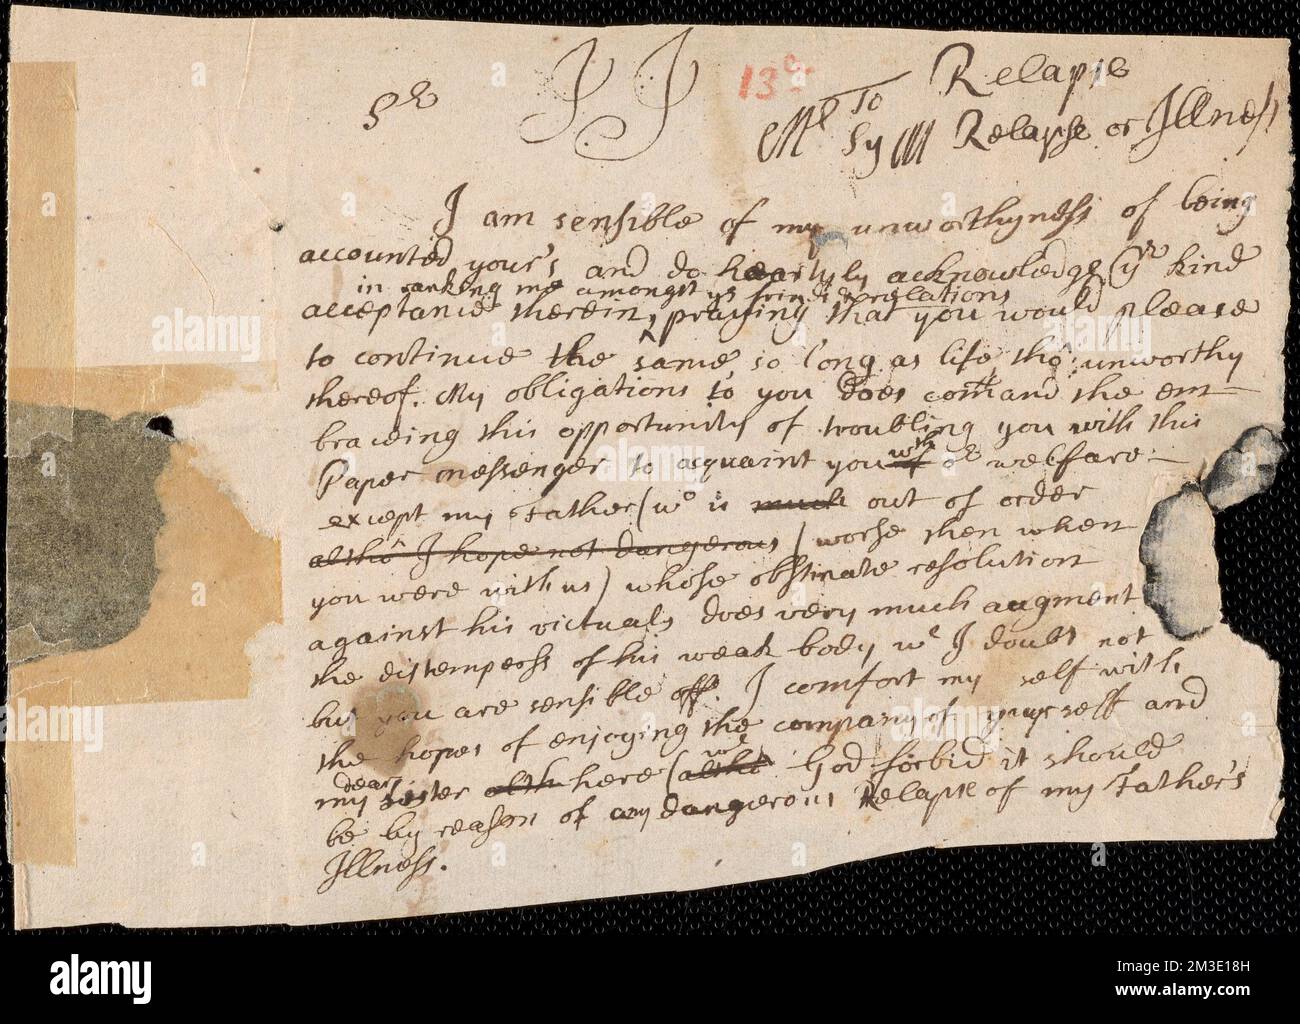 13
Relapse
Sr
To
Relapse or Illness
I am sensible of my unworthyness of being
accounted your's and do heartyly acknowledge yr kind
in ranking me amongst yr friends & relations
acceptance therein, praying that you would please
to continue the same, so long as life, tho' unworthy
thereof. My obligations to you does command the em-
braceing this opportunity of troubling you with this
Paper messenger to acquaint you wth or welfare
except my Father (wo is much out of order
altho' I hope not dangerous) worse then when
you were with us) whose obstinate resolution
against his victuals does very much augment
the distempers of his weak body wc I doubt not
but you are sensible off. I comfort my self with
the hopes of enjoying the company of yourself and
dear
my sister here (altho' God forbid it should
be by reason of any dangerous Relapse of my Father's
Illness.
alamy
Image ID: 2M3E18H
www.alamy.com